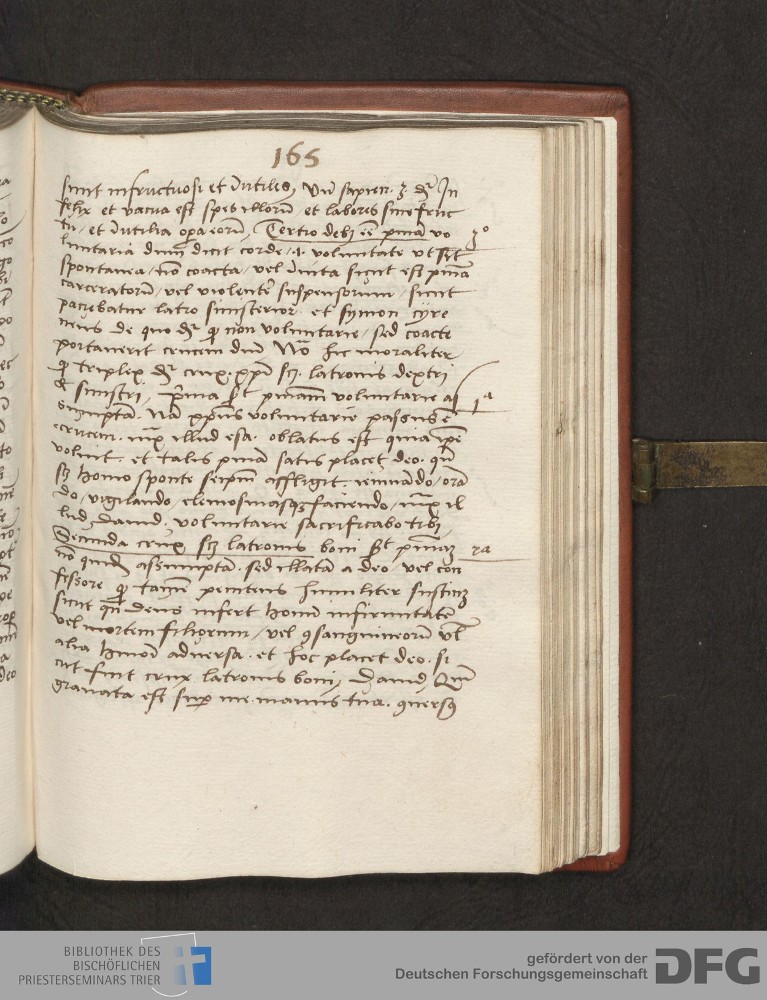 165
sunt infructuosi et Inutiles, Vn̄ sapien. 3 dr̄ In
felix et vacua est spes illorū et labores sine fruc
tu, et Inutilia opera eorū, Tertio debꝫ eē pēna vo 3º
luntaria dum dicit corde .i. voluntate ut sit
spontanea, nō coacta, vel Inuita sicut est pēna
carceratorū, vel violenter suspensorum, sicut
paciebatur latro sinisterior et symon cyre
neus de quo dr̄ ꝙ non voluntarie, sed coacte
portauerit crucem dn̄i Nō hic moraliter
ꝙ triplex dr̄ crux. xp̄i scꝫ. latronis dextri
& sinistri, prima sꝫ pēnam voluntarie as 1ª
sumptā. Nā xp̄us voluntarie passus ē
crucem. iux illud esa. oblatus est quia ipse
voluit. et talis pēna satis placet deo. qn̄
scꝫ homo sponte seipm̄ affligit. ieiunādo, orā
do, vigilando, elemosinasqꝫ faciendo, iux il
lud Dauid. voluntarie sacrificabo tibi,
Secunda crux scꝫ latronis boni sꝫ pēnaꝫ 2a
nō quidē assumptā. sed illatā a deo vel con
fessore ꝙ tamē penitens humiliter sustinꝫ
sicut qn̄ deus infert homī infirmitatē
vel mortem filiorum, vel ꝯsanguineorū vl̄
alia hmōi aduersa. et hoc placet deo. si
cut fuit crux latronis boni, Dauid, Qm̄
grauata est sup me manus tua. ꝯuersꝰ
BIBLIOTHEK DES
BISCHÖFLICHEN
PRIESTERSEMINARS TRIER
gefördert von der
Deutschen Forschungsgemeinschaft
DFG